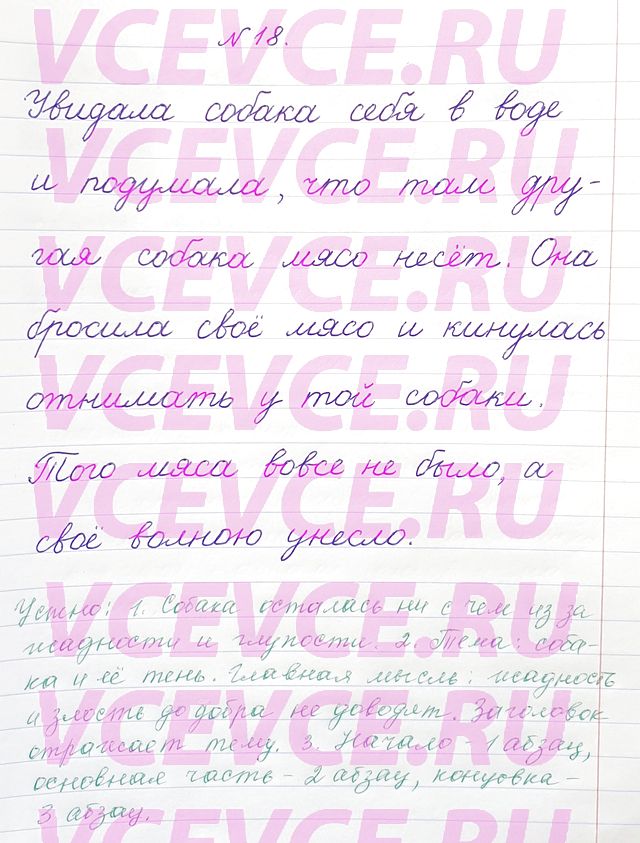 № 18.
Увидала собака себя в воде
и подумала, что там дру-
гая собака мясо несёт. Она
бросила своё мясо и кинулась
отнимать у той собаки.
Того мяса вовсе не было, а
своё волною унесло.
Устно: 1. Собака осталась ни с чем из за
жадности и глупости. 2. Тема: соба-
ка и её тень. Главная мысль: жадность
и злость до добра не доводят. Заголовок
отражает тему. 3. Начало - 1 абзац,
основная часть - 2 абзац, концовка -
3 абзац.
VCEVCE.RU
VCEVCE.RU
VCEVCE.RU
VCEVCE.RU
VCEVCE.RU
VCEVCE.RU
VCEVCE.RU
VCEVCE.RU